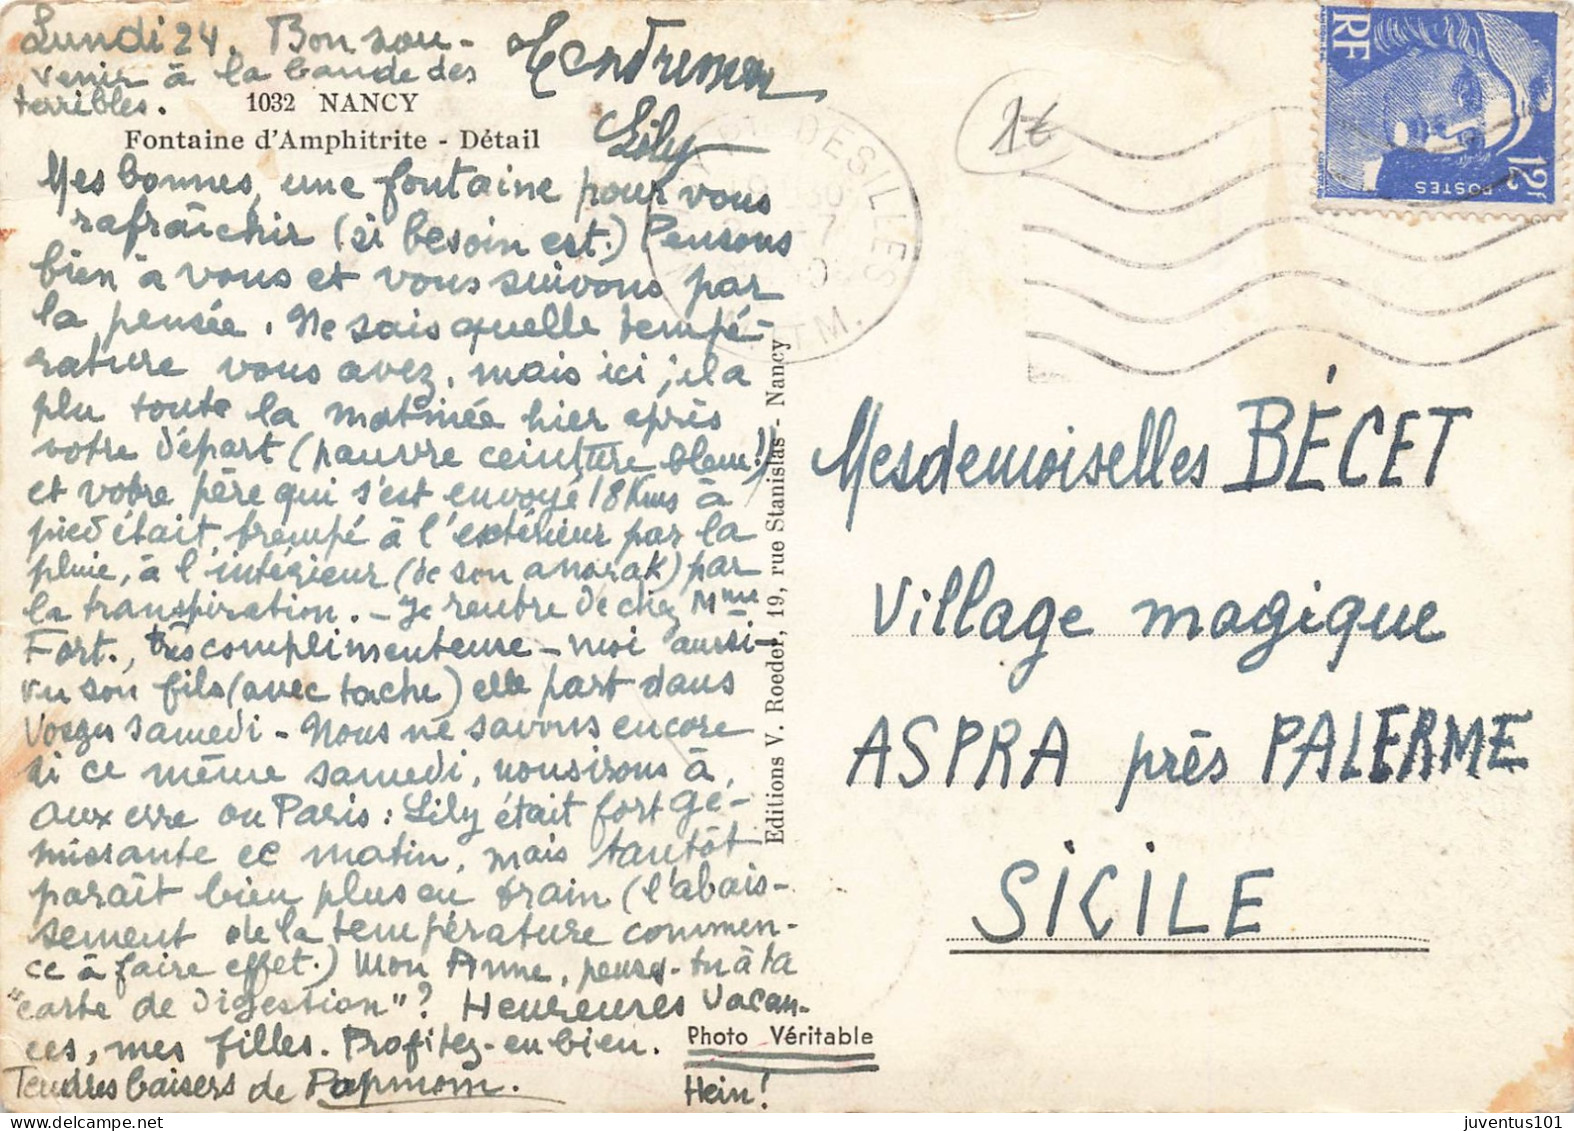 Lundi 24. Bon sou-
venir à la bande des
terribles.
Tendremen
Lily
1032 NANCY
Fontaine d'Amphitrite - Détail
Mes bonnes, une fontaine pour vous
rafraîchir (si besoin est.) Pensons
bien à vous et vous suivons par
la pensée. Ne sais quelle tempé-
rature vous avez, mais ici, il a
plu toute la matinée hier après
votre départ (pauvre ceinture bleue!)
et votre père qui s'est envoyé 18 Kms à
pied était trempé à l'extérieur par la
pluie, à l'intérieur (de son anorak) par
la transpiration. - Je rentre de chez Mme
Fort., très complimenteuse - moi aussi -
vu son fils (avec tache) elle part dans
Vosges samedi - Nous ne savons encore
si ce même samedi, nous irons à
Auxerre ou Paris : Lily était fort gé-
missante ce matin, mais tantôt
paraît bien plus en train (l'abais-
sement de la température commen-
ce à faire effet.) Mon Anne, penses-tu à ta
"carte de digestion"? Heureuses vacan-
ces, mes filles. Profitez-en bien.
Tendres baisers de Papmom.
Photo Véritable
Hein!
Editions V. Roeder, 19, rue Stanislas - Nancy
DESILLES
30
-7
M.
1€
RF
POSTES
12F
Mesdemoiselles BÉCET
Village magique
ASPRA près PALERME
SICILE
juventus101